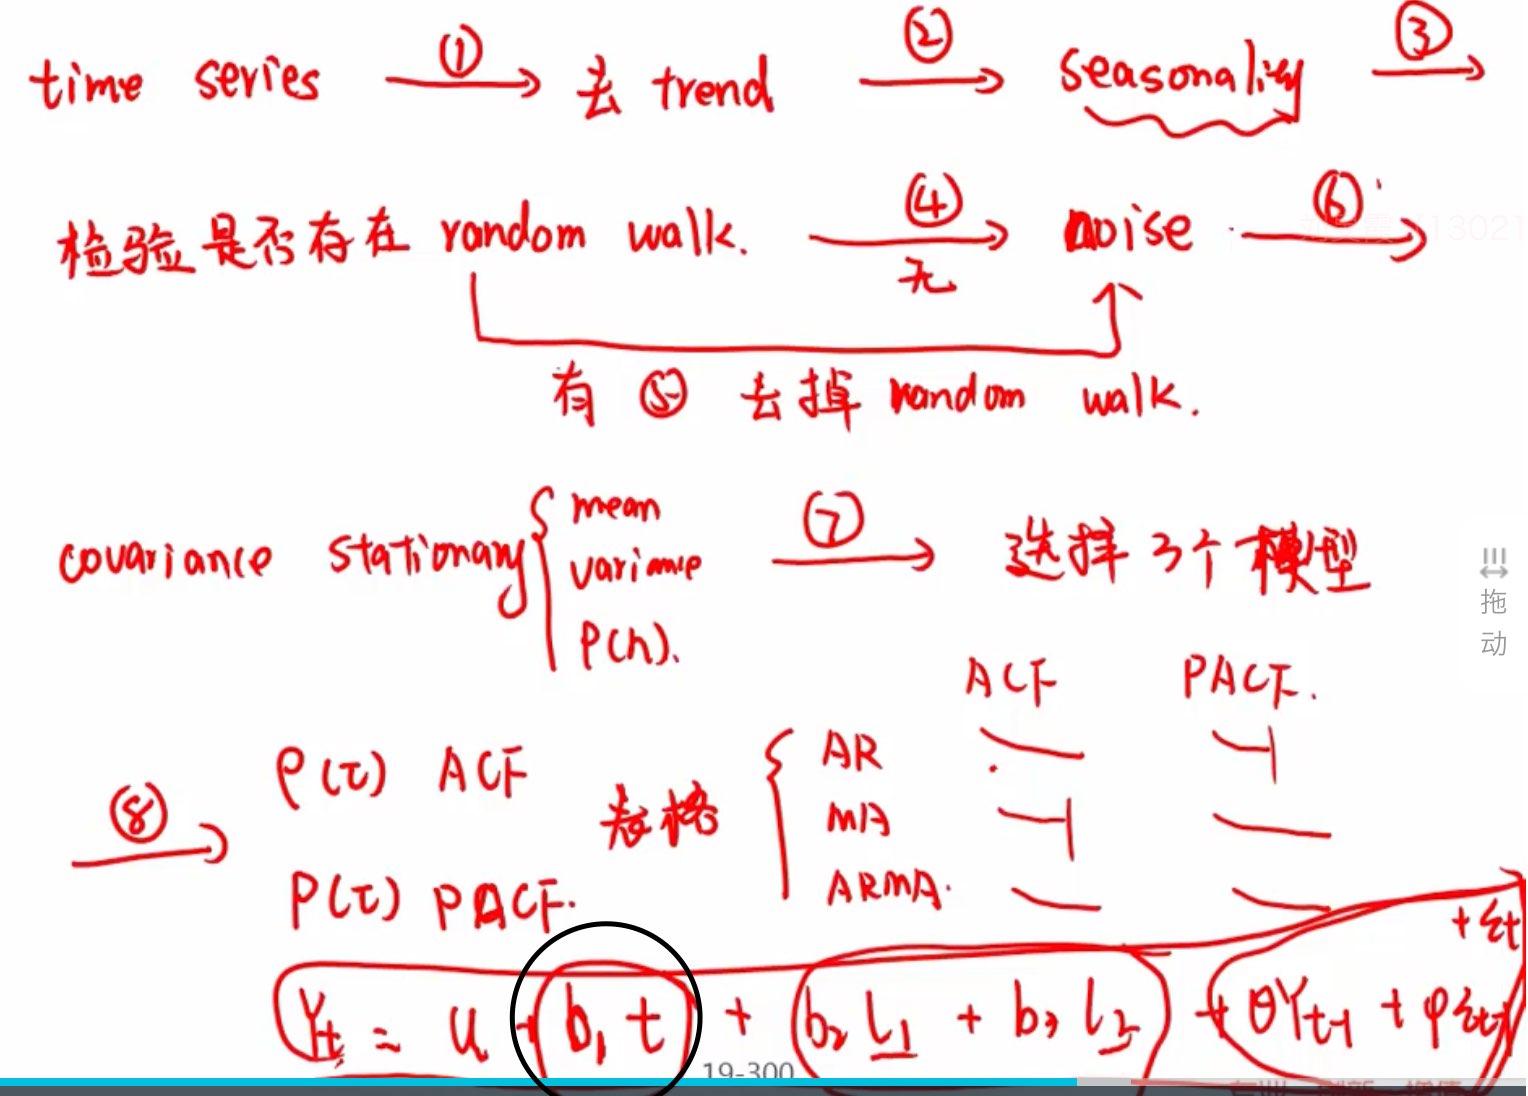 time series ① 去 trend ② seasonality ③
检验是否存在 random walk. ④ 无 noise ⑥
有 ⑤ 去掉 random walk.
covariance stationary mean variance ρ(h). ⑦ 选择3个模型
ACF PACF.
⑧ ρ(τ) ACF 表格 AR
MA
P(τ) PACF. ARMA.
Yt = u + b1 t + b2 L1 + b3 L2 + θYt-1 + φεt-1 + εt
19-300
拖
动